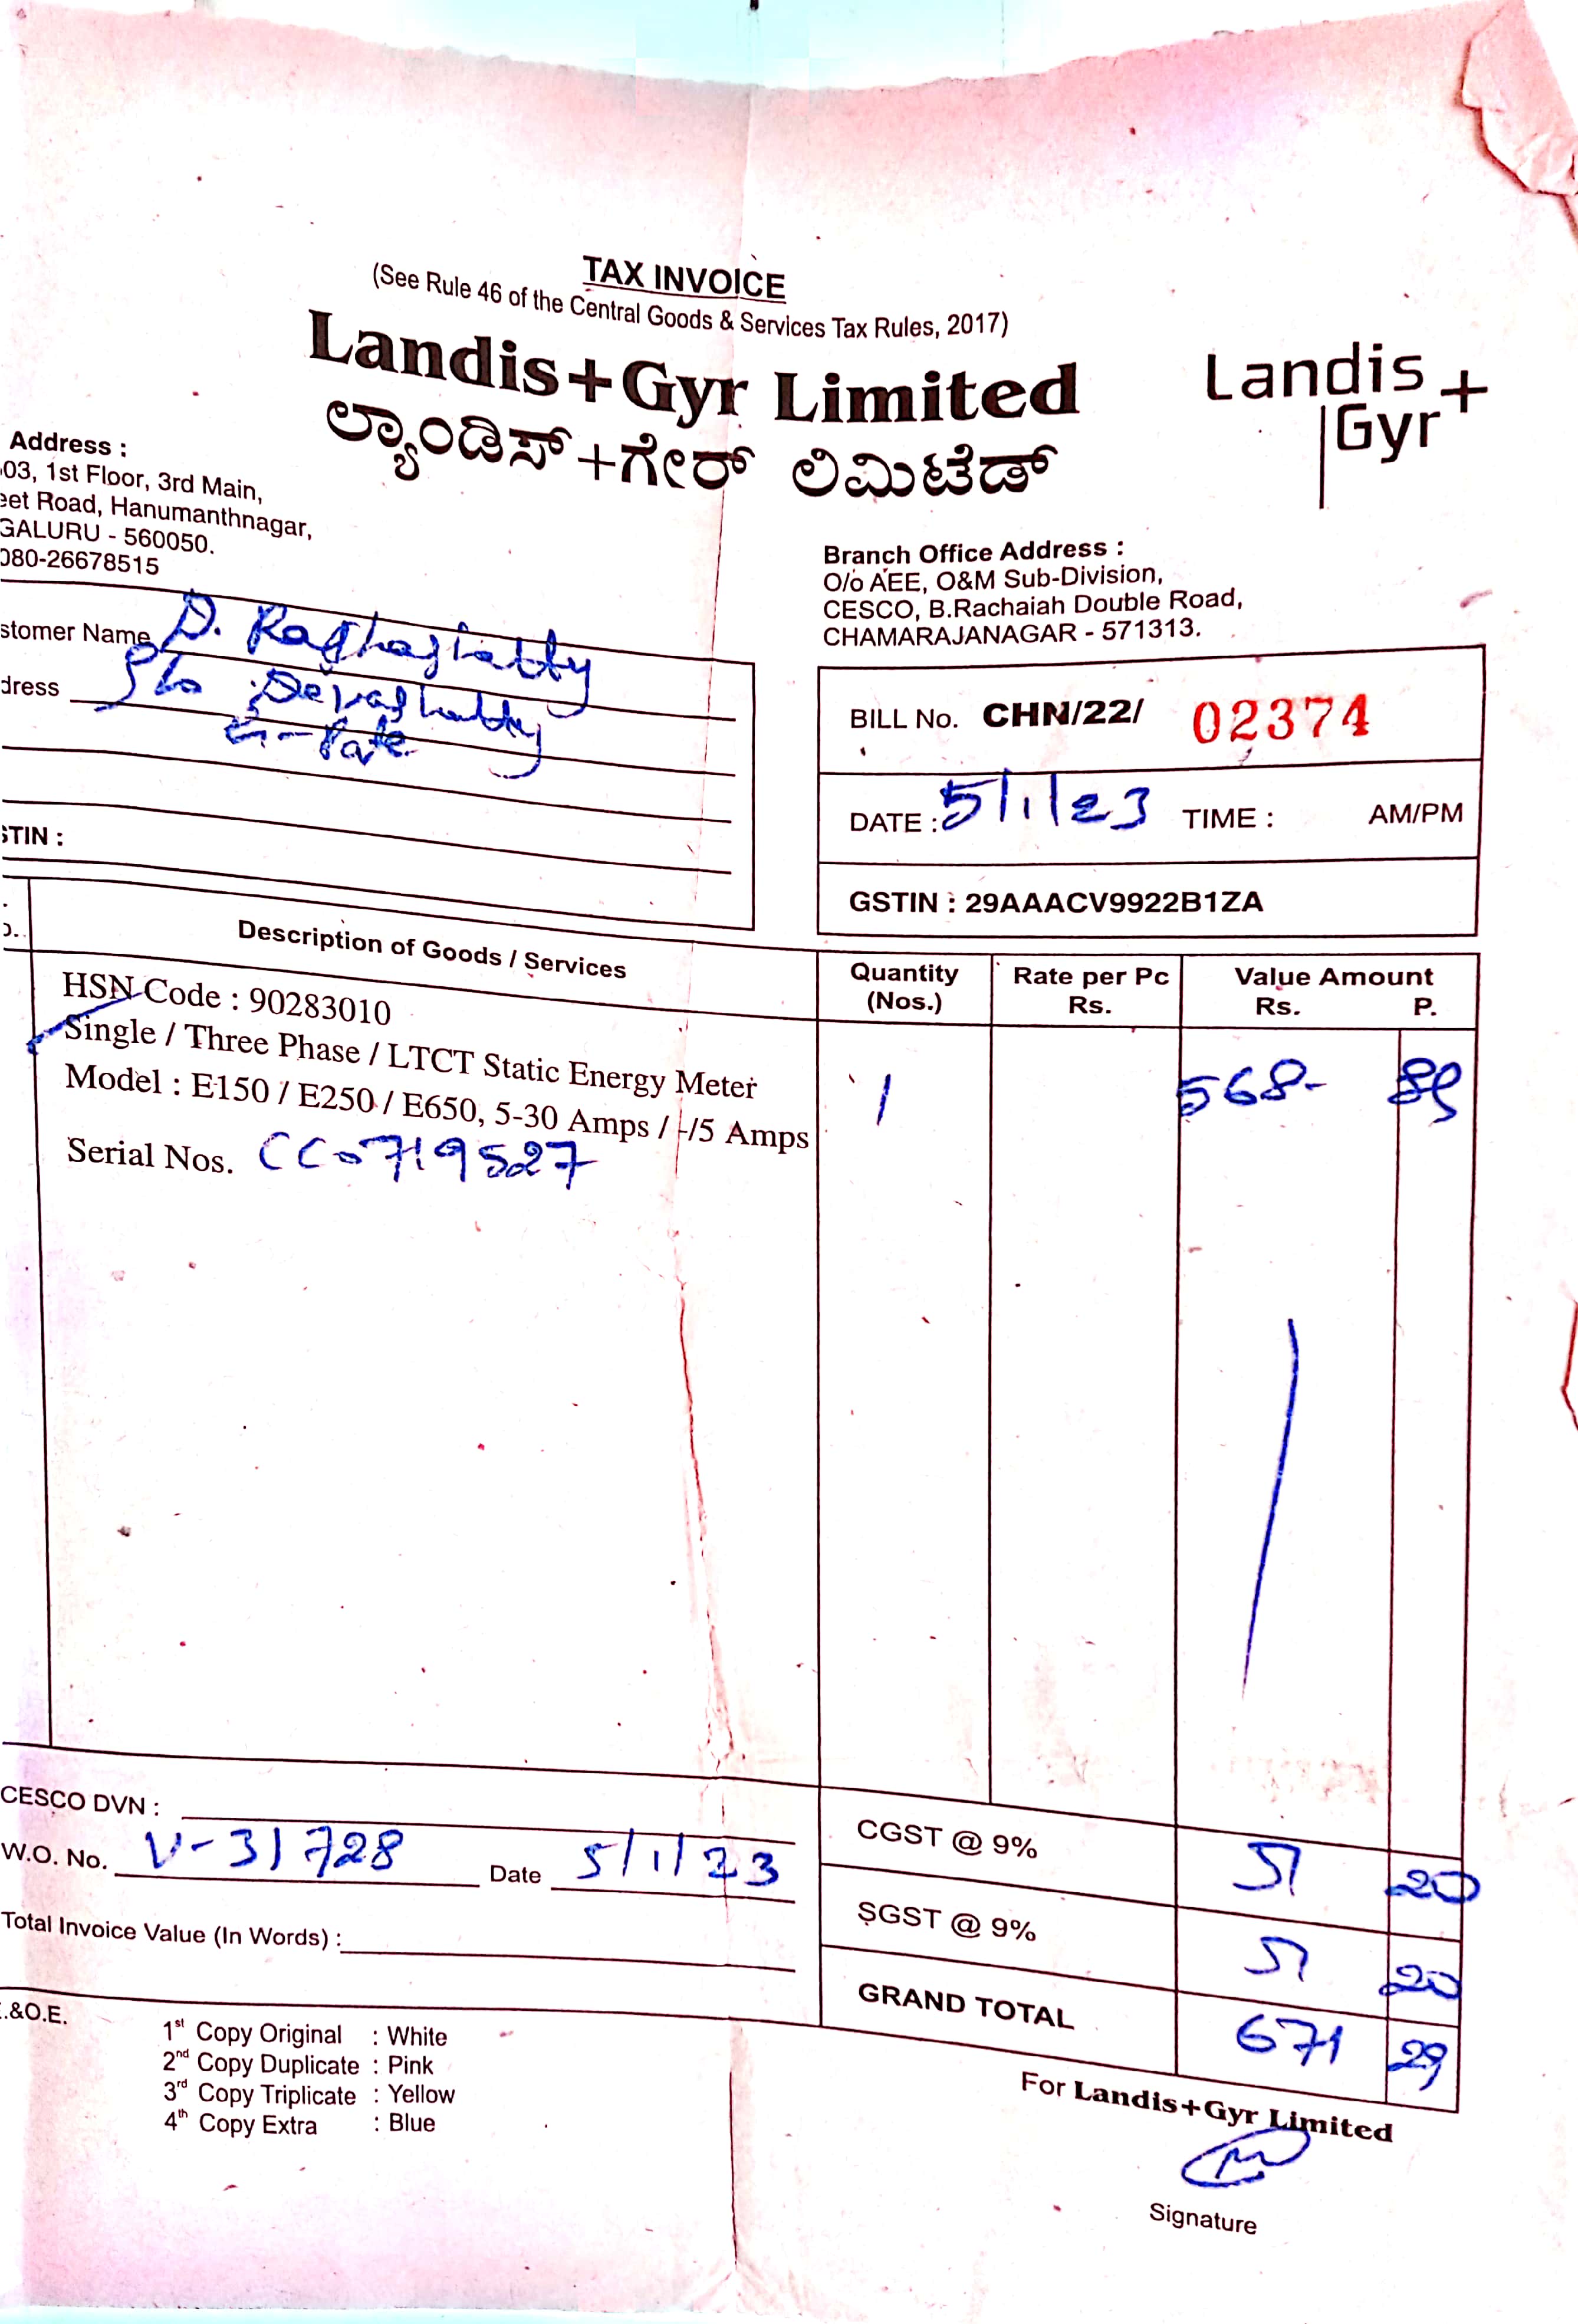 TAX INVOICE
(See Rule 46 of the Central Goods & Services Tax Rules, 2017)
Landis+Gyr Limited
ಲ್ಯಾಂಡಿಸ್+ಗೇರ್ ಲಿಮಿಟೆಡ್
Landis+
Gyr
Address :
03, 1st Floor, 3rd Main,
eet Road, Hanumanthnagar,
GALURU - 560050.
080-26678515
Branch Office Address :
O/o AEE, O&M Sub-Division,
CESCO, B.Rachaiah Double Road,
CHAMARAJANAGAR - 571313.
stomer Name D. Raghashetty
dress S/o Devashetty
STIN :
BILL No. CHN/22/ 02374
DATE : 5/1/23 TIME : AM/PM
GSTIN : 29AAACV9922B1ZA
Description of Goods / Services
Quantity (Nos.)
Rate per Pc Rs.
Value Amount Rs. P.
HSN Code : 90283010
Single / Three Phase / LTCT Static Energy Meter
Model : E150 / E250 / E650, 5-30 Amps / -/5 Amps
Serial Nos. CC0719527
1 568- 89
CESCO DVN :
W.O. No. V-31728 Date 5/1/23
Total Invoice Value (In Words) :
CGST @ 9% 51 20
SGST @ 9% 51 20
GRAND TOTAL 671 29
.&O.E.
1st Copy Original : White
2nd Copy Duplicate : Pink
3rd Copy Triplicate : Yellow
4th Copy Extra : Blue
For Landis+Gyr Limited
Signature